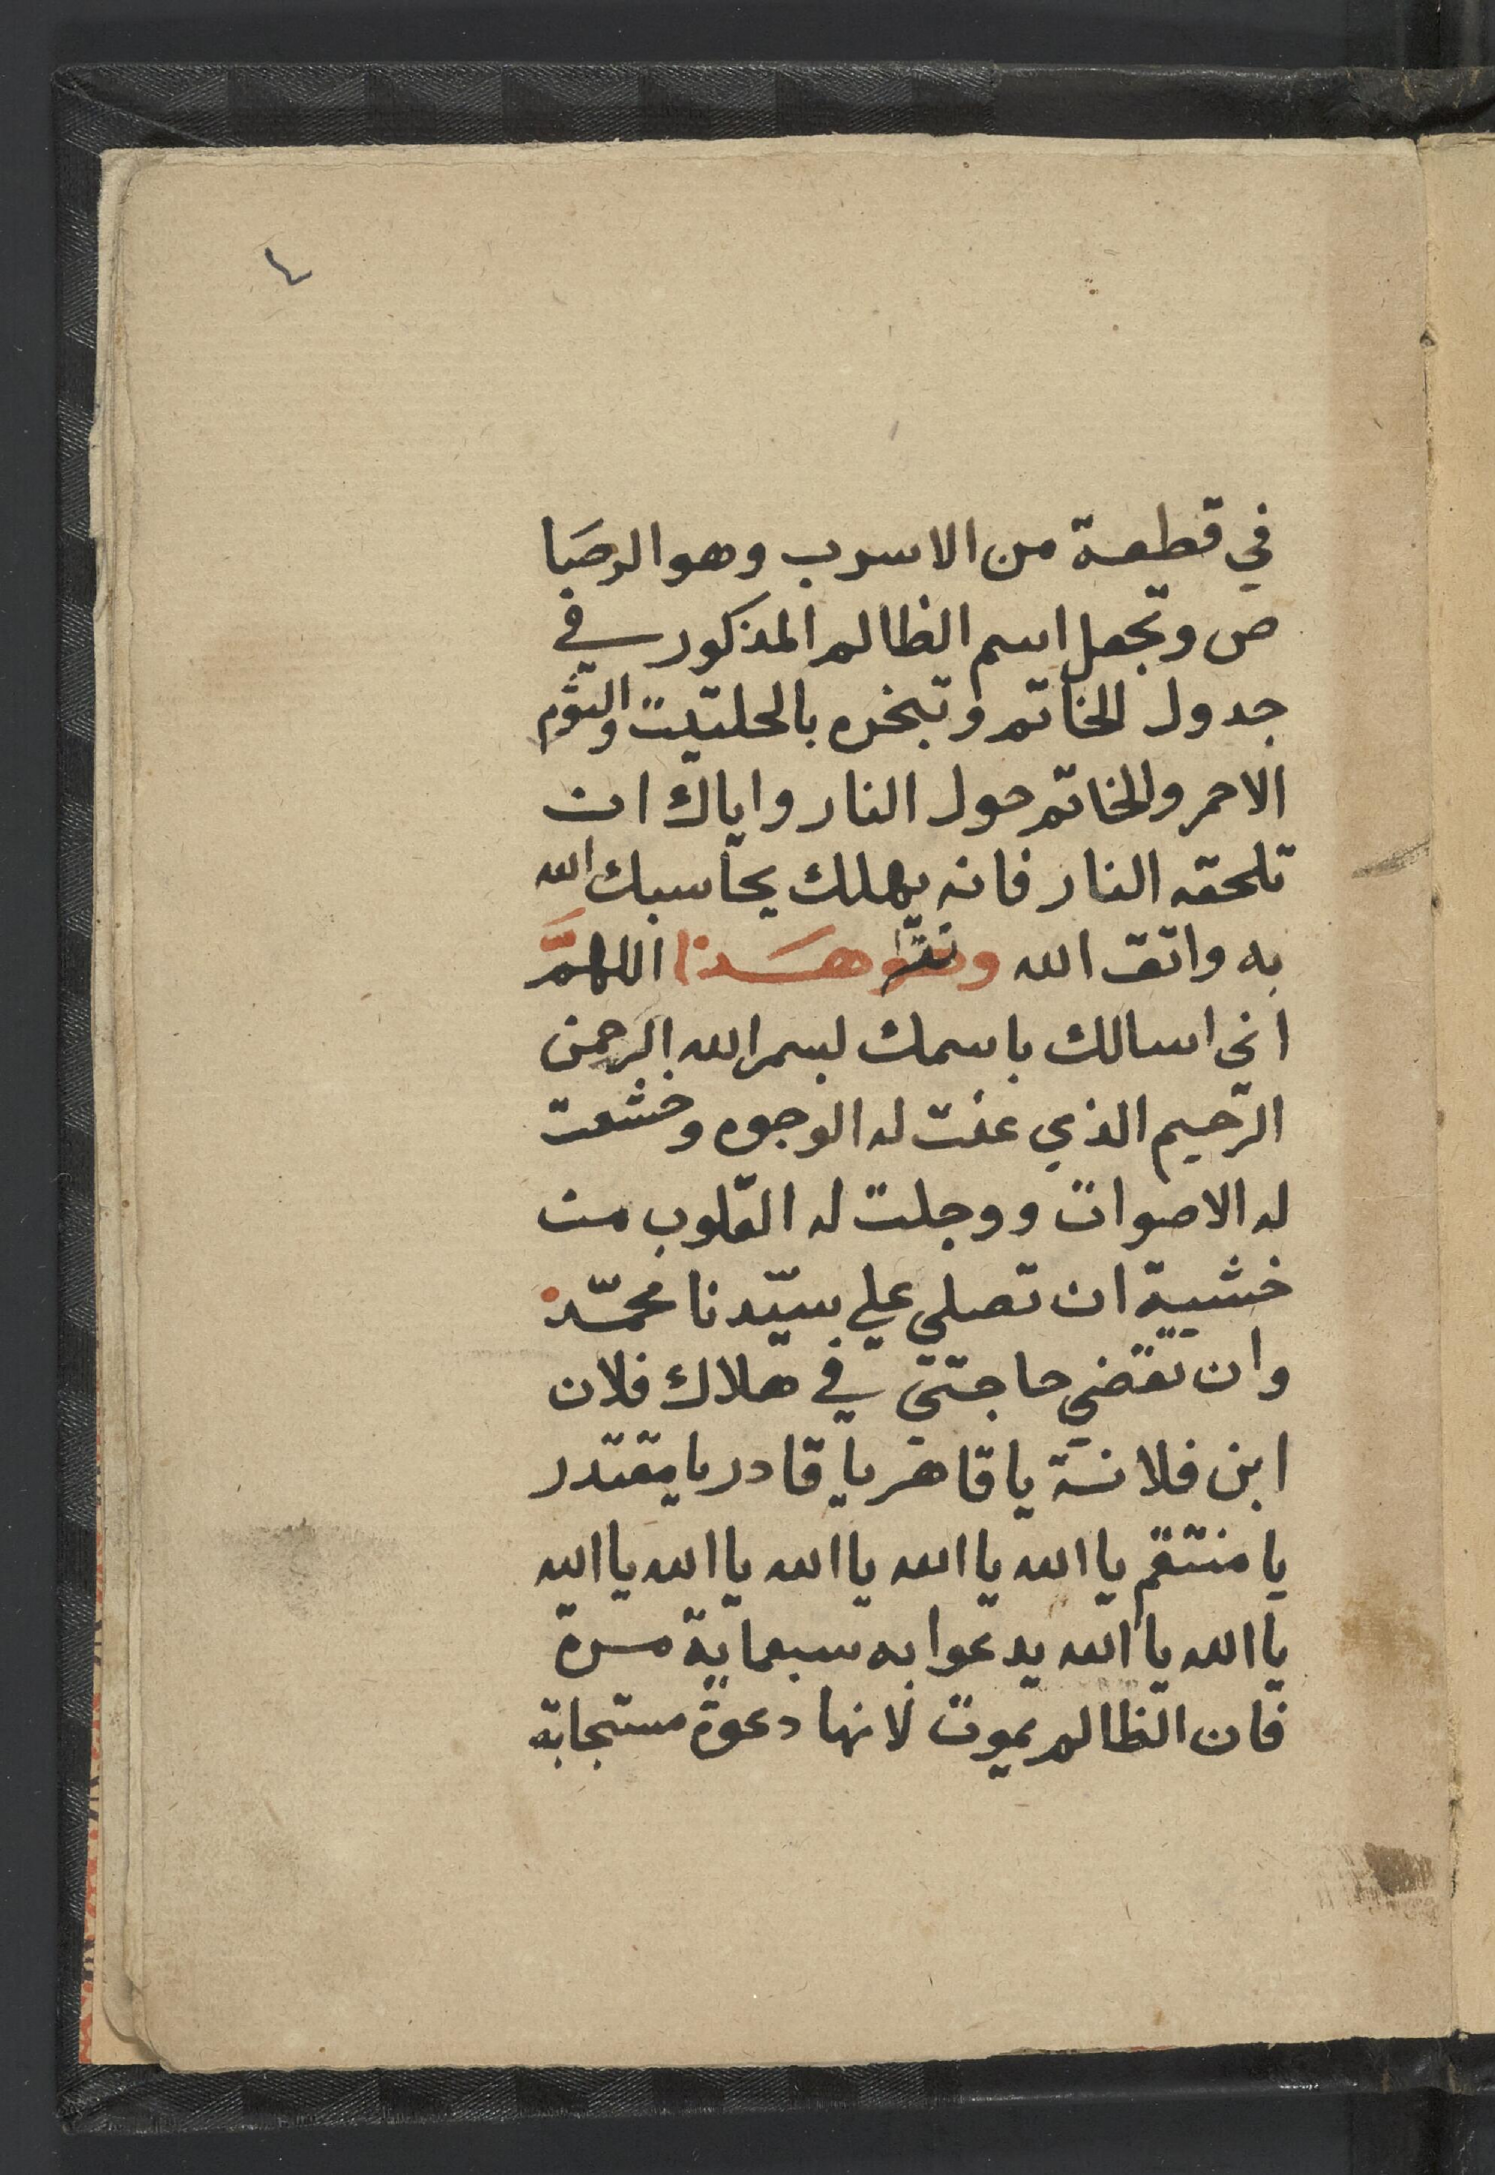 ٤
في قطعة من الاسرب وهو الرصبا
ص وتجعل اسم الظالم المذكور في
جدول الخاتم وتبخره بالحلتيت والثوم
الاحمر والخاتم حول النار واياك ان
تلحقه النار فانه يهلك يحاسبك الله
به واتق الله هذا اللهم
اني اسالك باسمك بسم الله الرحمن
الرحيم الذي عنت له الوجوه وخشعت
له الاصوات ووجلت له القلوب من
خشية ان تصلي علي سيّدنا محمّد
وان تقضي حاجتي في هلاك فلان
ابن فلانة يا قاهر يا قادر يا مقتدر
يا منتقم يا الله يا الله يا الله يا الله يا الله
يا الله يا الله يدعوا به سبعماية مرة
فان الظالم يموت لانها دعوة مستجابة